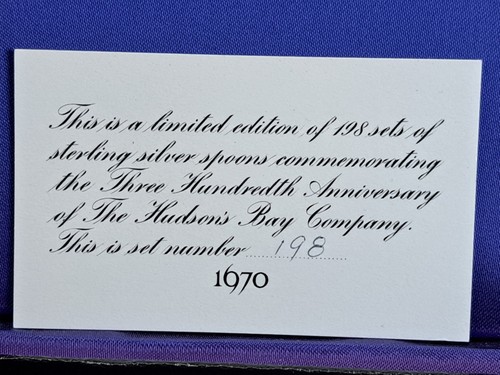 This is a limited edition of 198 sets of
sterling silver spoons commemorating
the Three Hundredth Anniversary
of The Hudson's Bay Company.
This is set number 198
1670